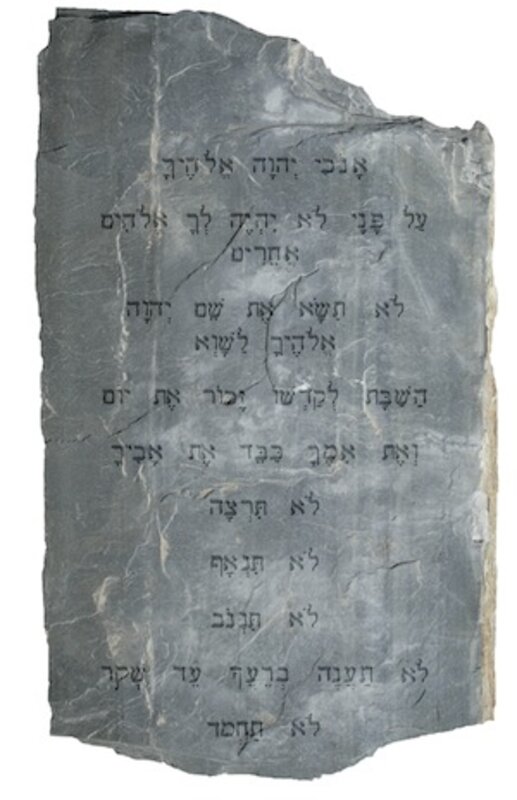 אָנֹכִי יְהוָה אֱלֹהֶיךָ
עַל פָּנָי לֹא יִהְיֶה לְךָ אלֹהִים
אֲחֵרִים
לֹא תִשָּׂא אֶת שֵׁם יְהוָה
אֱלֹהֶיךָ לַשָּׁוְא
הַשַּׁבָּת לְקַדְּשׁוֹ זָכוֹר אֶת יוֹם
וְאֶת אִמֶּךָ כַּבֵּד אֶת אָבִיךָ
לֹא תִּרְצָח
לֹא תִּנְאָף
לֹא תִּגְנֹב
לֹא תַעֲנֶה בְרֵעֲךָ עֵד שָׁקֶר
לֹא תַחְמֹד